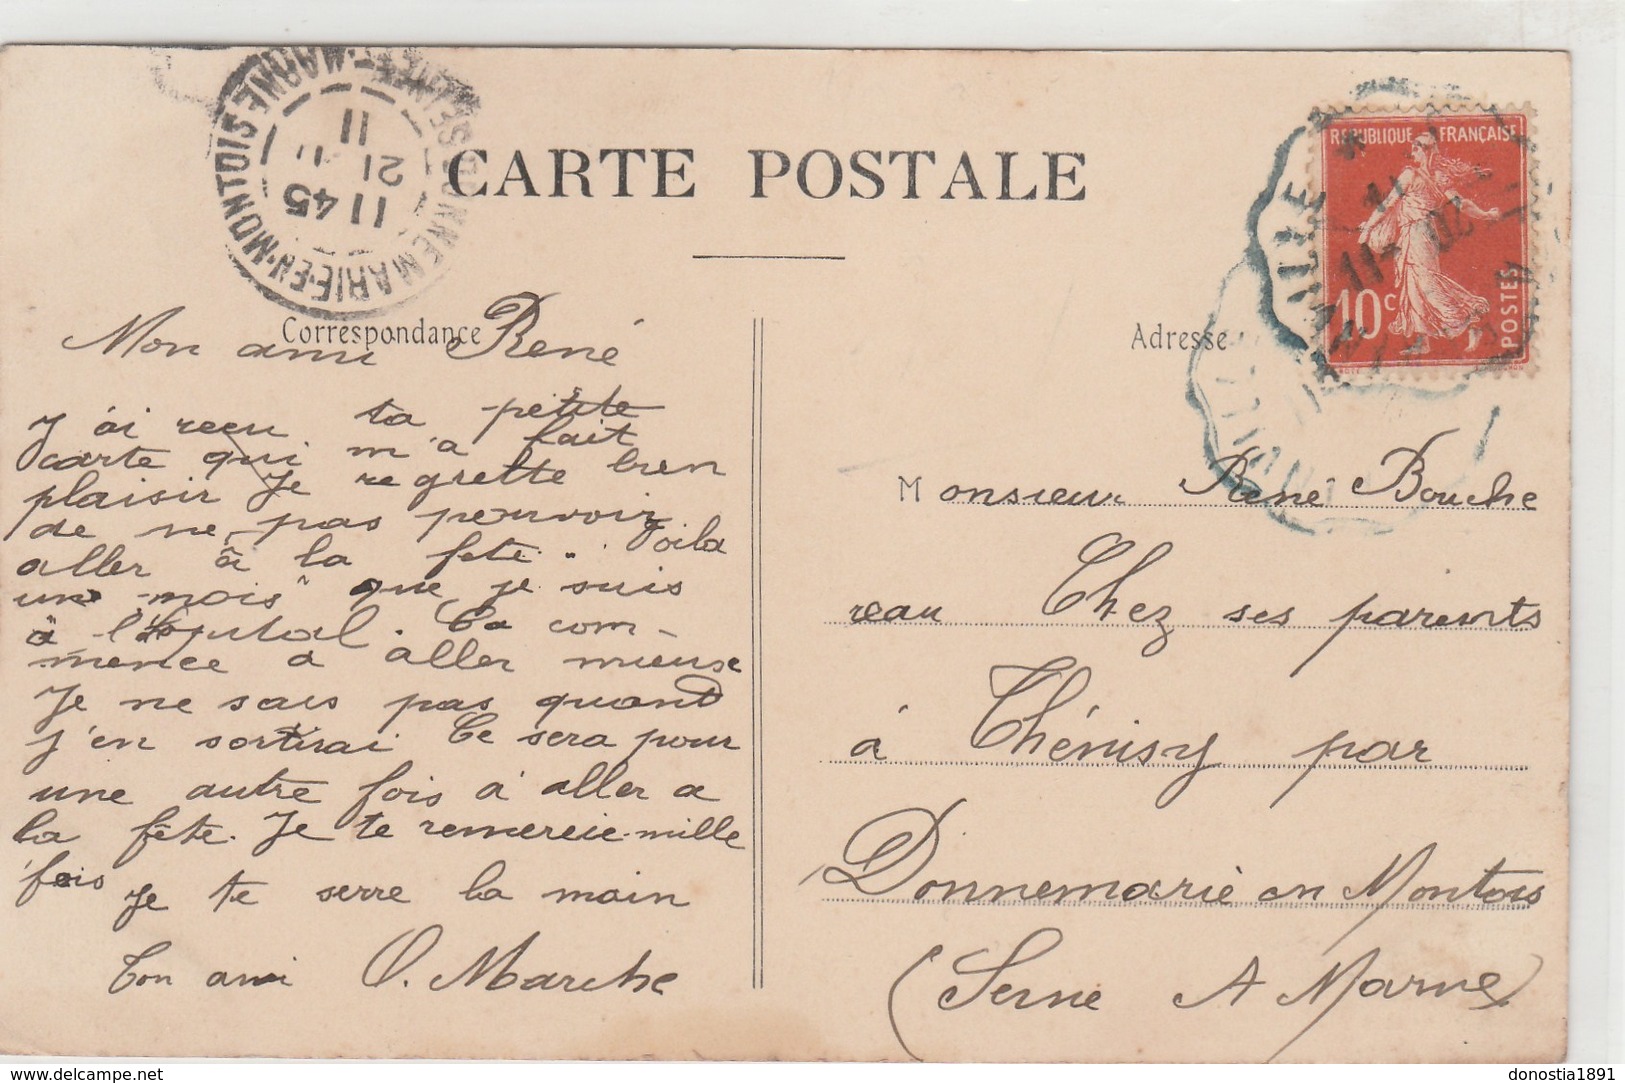 CARTE POSTALE
Correspondance
Mon ami René
J'ai reçu ta petite
carte qui m'a fait
plaisir Je regrette bien
de ne pas pouvoir
aller à la fete. Voila
un mois que je suis
à l'hopital. Ca com-
mence a aller mieuse
Je ne sais pas quant
j'en sortirai Ce sera pour
une autre fois a aller a
la fête. Je te remercie mille
fois
Je te serre la main
Ton ami O. Marche
Adresse
Monsieur René Bouche
reau Chez ses parents
à Thénisy par
Donnemarie en Montois
(Seine A Marne)
DONNEMARIE-EN-MONTOIS
SEINE-ET-MARNE
11 45
21
11
REPUBLIQUE FRANÇAISE
10 c
POSTES
delcampe.net
donostia1891